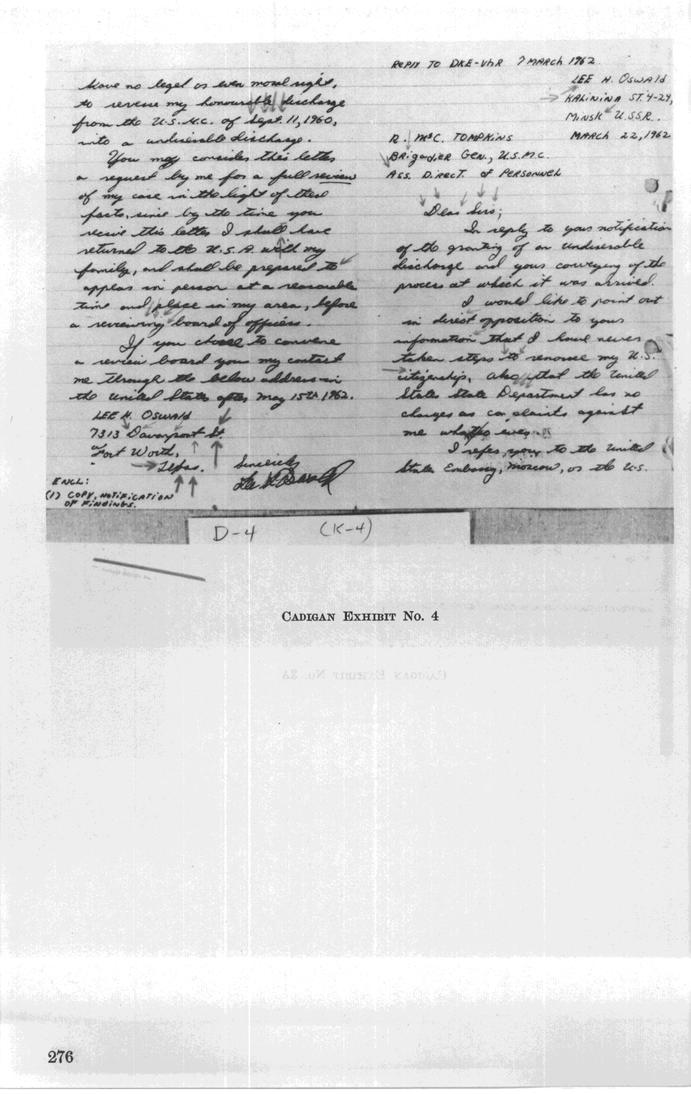 have no legel or even moral right,
to reverse my honourable discharge
from the U.S.M.C. of Sept. 11, 1960,
into a undiserable discharge.
You may consider this letter
a request by me for a full review
of my case in the light of these
facts, since by the time you
receive this letter I shall have
returned to the U.S.A. with my
family, and shall be prepared to
appear in person at a reasonable
time and place in my area, before
a reviewing board of officers.
If you choose to convene
a review board you my contact
me through the below address in
the United States after May 15th 1962.
LEE H. OSWALD
7313 Davenport St.
Fort Worth,
Texas.
Sincerely
Lee H. Oswald
ENCL:
(1) COPY, NOTIFICATION
OF FINDINGS.
REPLY TO DKE-VhR 7 MARCH 1962
LEE H. OSWALD
KALININA ST. 4-24,
MINSK U.S.S.R.
R. McC. TOMPKINS MARCH 22, 1962
BRIGADIER GEN., U.S.M.C.
ASS. DIRECT. of PERSONNEL
Dear Sirs;
In reply to your notification
of the granting of an undiserable
discharge and your conveying of the
process at which it was arrived.
I would like to point out
in direct opposition to your
information that I have never
taken steps to renounce my U.S.
citizenship. Also that the United
States State Department has no
charges or complaints against
me what so ever.
I refer you to the United
States Embassy, Moscow, or the U.S.
D-4 (K-4)
CADIGAN EXHIBIT NO. 4
276